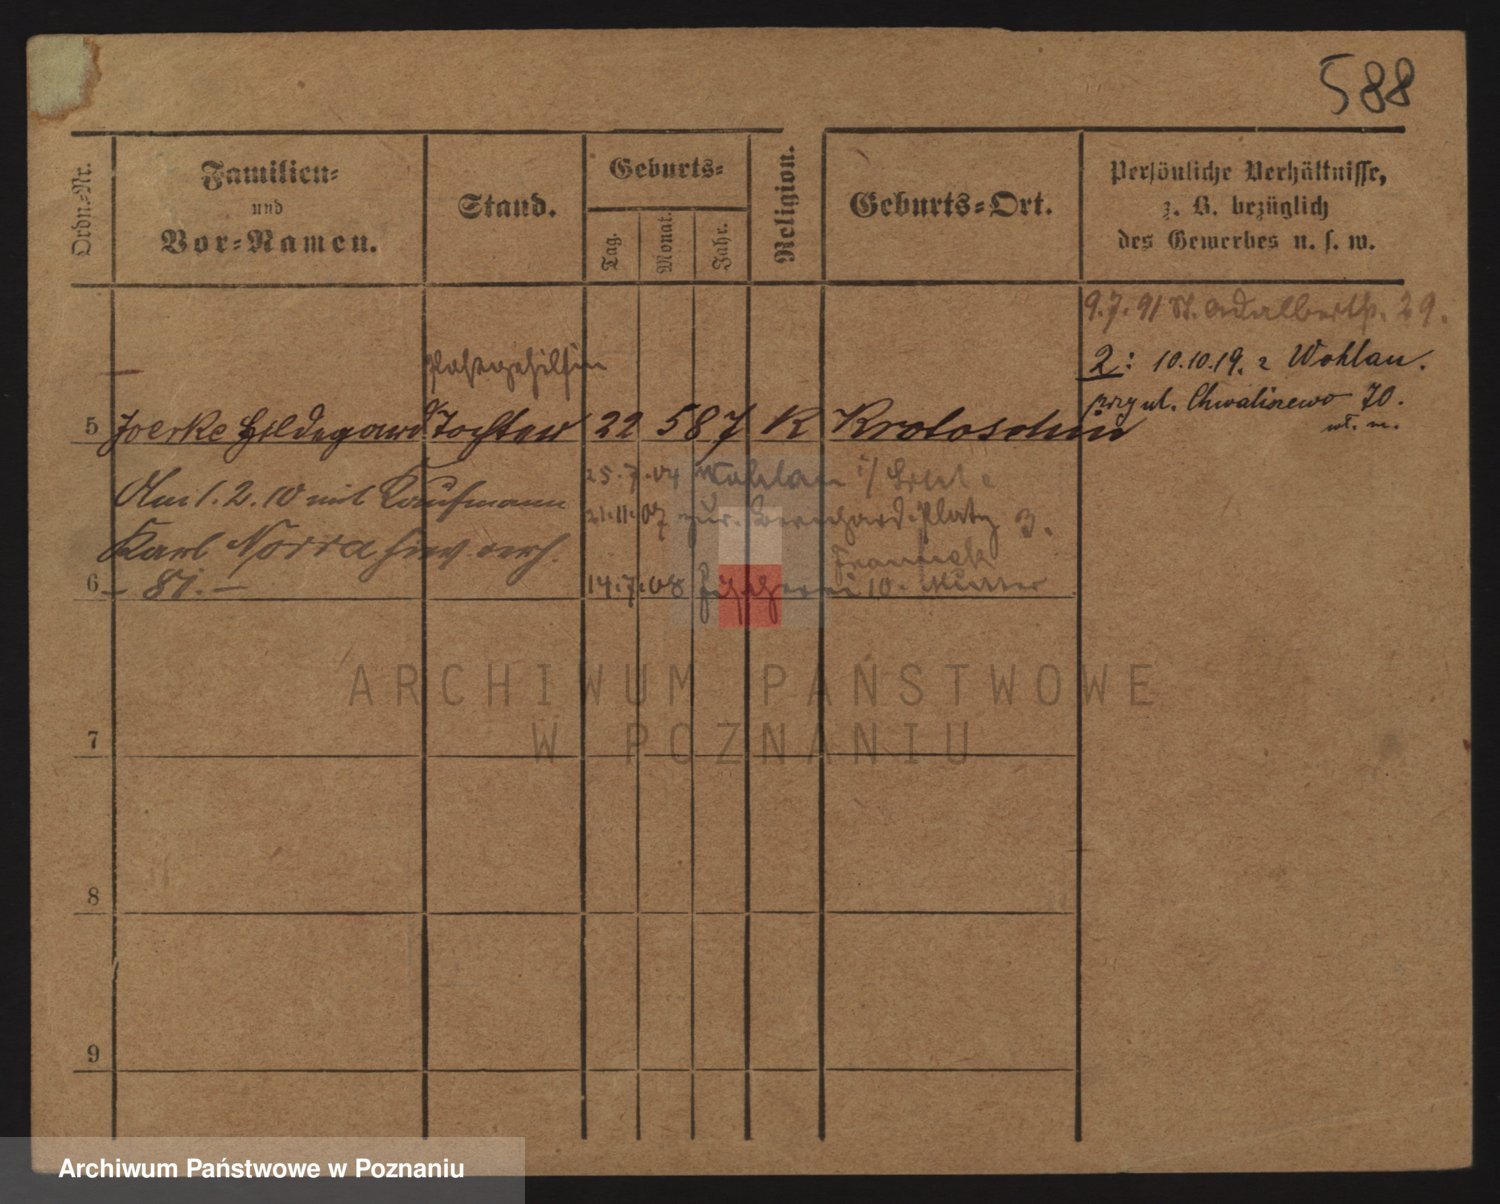 588
Ordn.-Nr.
Familien-
und
Vor-Namen.
Stand.
Geburts-
Tag.
Monat.
Jahr.
Religion.
Geburts-Ort.
Persönliche Verhältnisse,
z. B. bezüglich
des Gewerbes u. s. w.
9.7.91 St. Adalbertstr. 29.
2: 10.10.19. z Wohlau.
przy ul. Chwaliszewo 70.
Postgehilfin
5 Joerke Hildegard Tochter 22 5 87 K Krotoschin
25.7.04 Wohlau
Am 1.2.10 mit Kaufmann
21.11.07 zur. Bernhard. Platz 3.
Karl Norra hier verh.
6 14.7.08 Fischerei 10. Mutter
7
8
9
ARCHIWUM PAŃSTWOWE
W POZNANIU
Archiwum Państwowe w Poznaniu